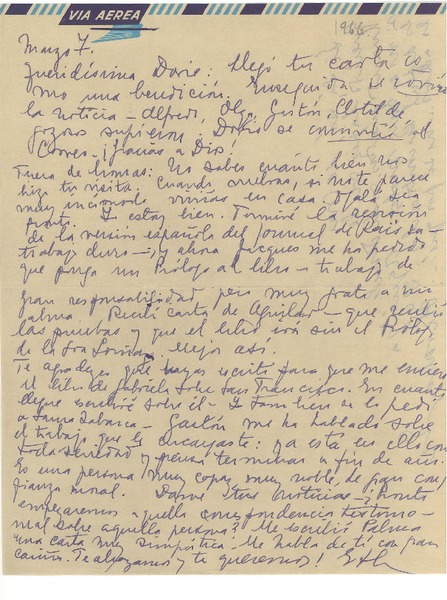 VIA AEREA
1966
Marzo 7.
Queridísima Doris: Llegó tu carta co
mo una bendición. Enseguida se corrió
la noticia - Alfredo, Olga, Gastón, Clotilde
gozosos supieron: Doris se convirtió al
Correo. ¡Gracias a Dios!
Fuera de bromas: No sabes cuánto bien nos
hizo tu visita. Cuando vuelvas, si no te parece
muy incómodo vivirás en casa. Ojalá sea
pronto. Yo estoy bien. Terminé la revisión
de la versión española del Journal de Raïssa -
trabajo duro - ¡y ahora Jacques me ha pedido
que ponga un Prólogo al libro - trabajo de
gran responsabilidad pero muy grato a mi
alma. Recibí carta de Aguilar - que recibió
las pruebas y que el libro irá sin el Prólogo
de la Sra Mejor así.
Te agradezco que hayas escrito para que me envíen
el libro de Gabriela sobre San Francisco. En cuanto
llegue escribiré sobre él - Y también se lo pedí
a Laura Gastón me ha hablado sobre
el trabajo que le encargaste: ya está en ello con
toda seriedad y piensa terminar a fin de año.
Es una persona muy capaz, muy noble, de gran con
fianza moral. Dame tus noticias - ¿Cuándo
empezaremos aquella correspondencia
sobre aquella persona? Me escribió Palma
una carta muy simpática. Me habla de ti con gran
cariño. Te abrazamos y te queremos!